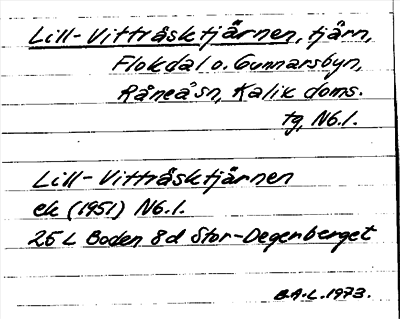 Lill-Vitträsktjärnen, tjärn,
Flokdal o. Gunnarsbyn,
Råneå sn, Kalix doms.
tg, Nb.l.
Lill-Vitträsktjärnen
ek (1951) Nb.l.
25 L Boden 8d Stor-Degerberget
B.A-L. 1973.